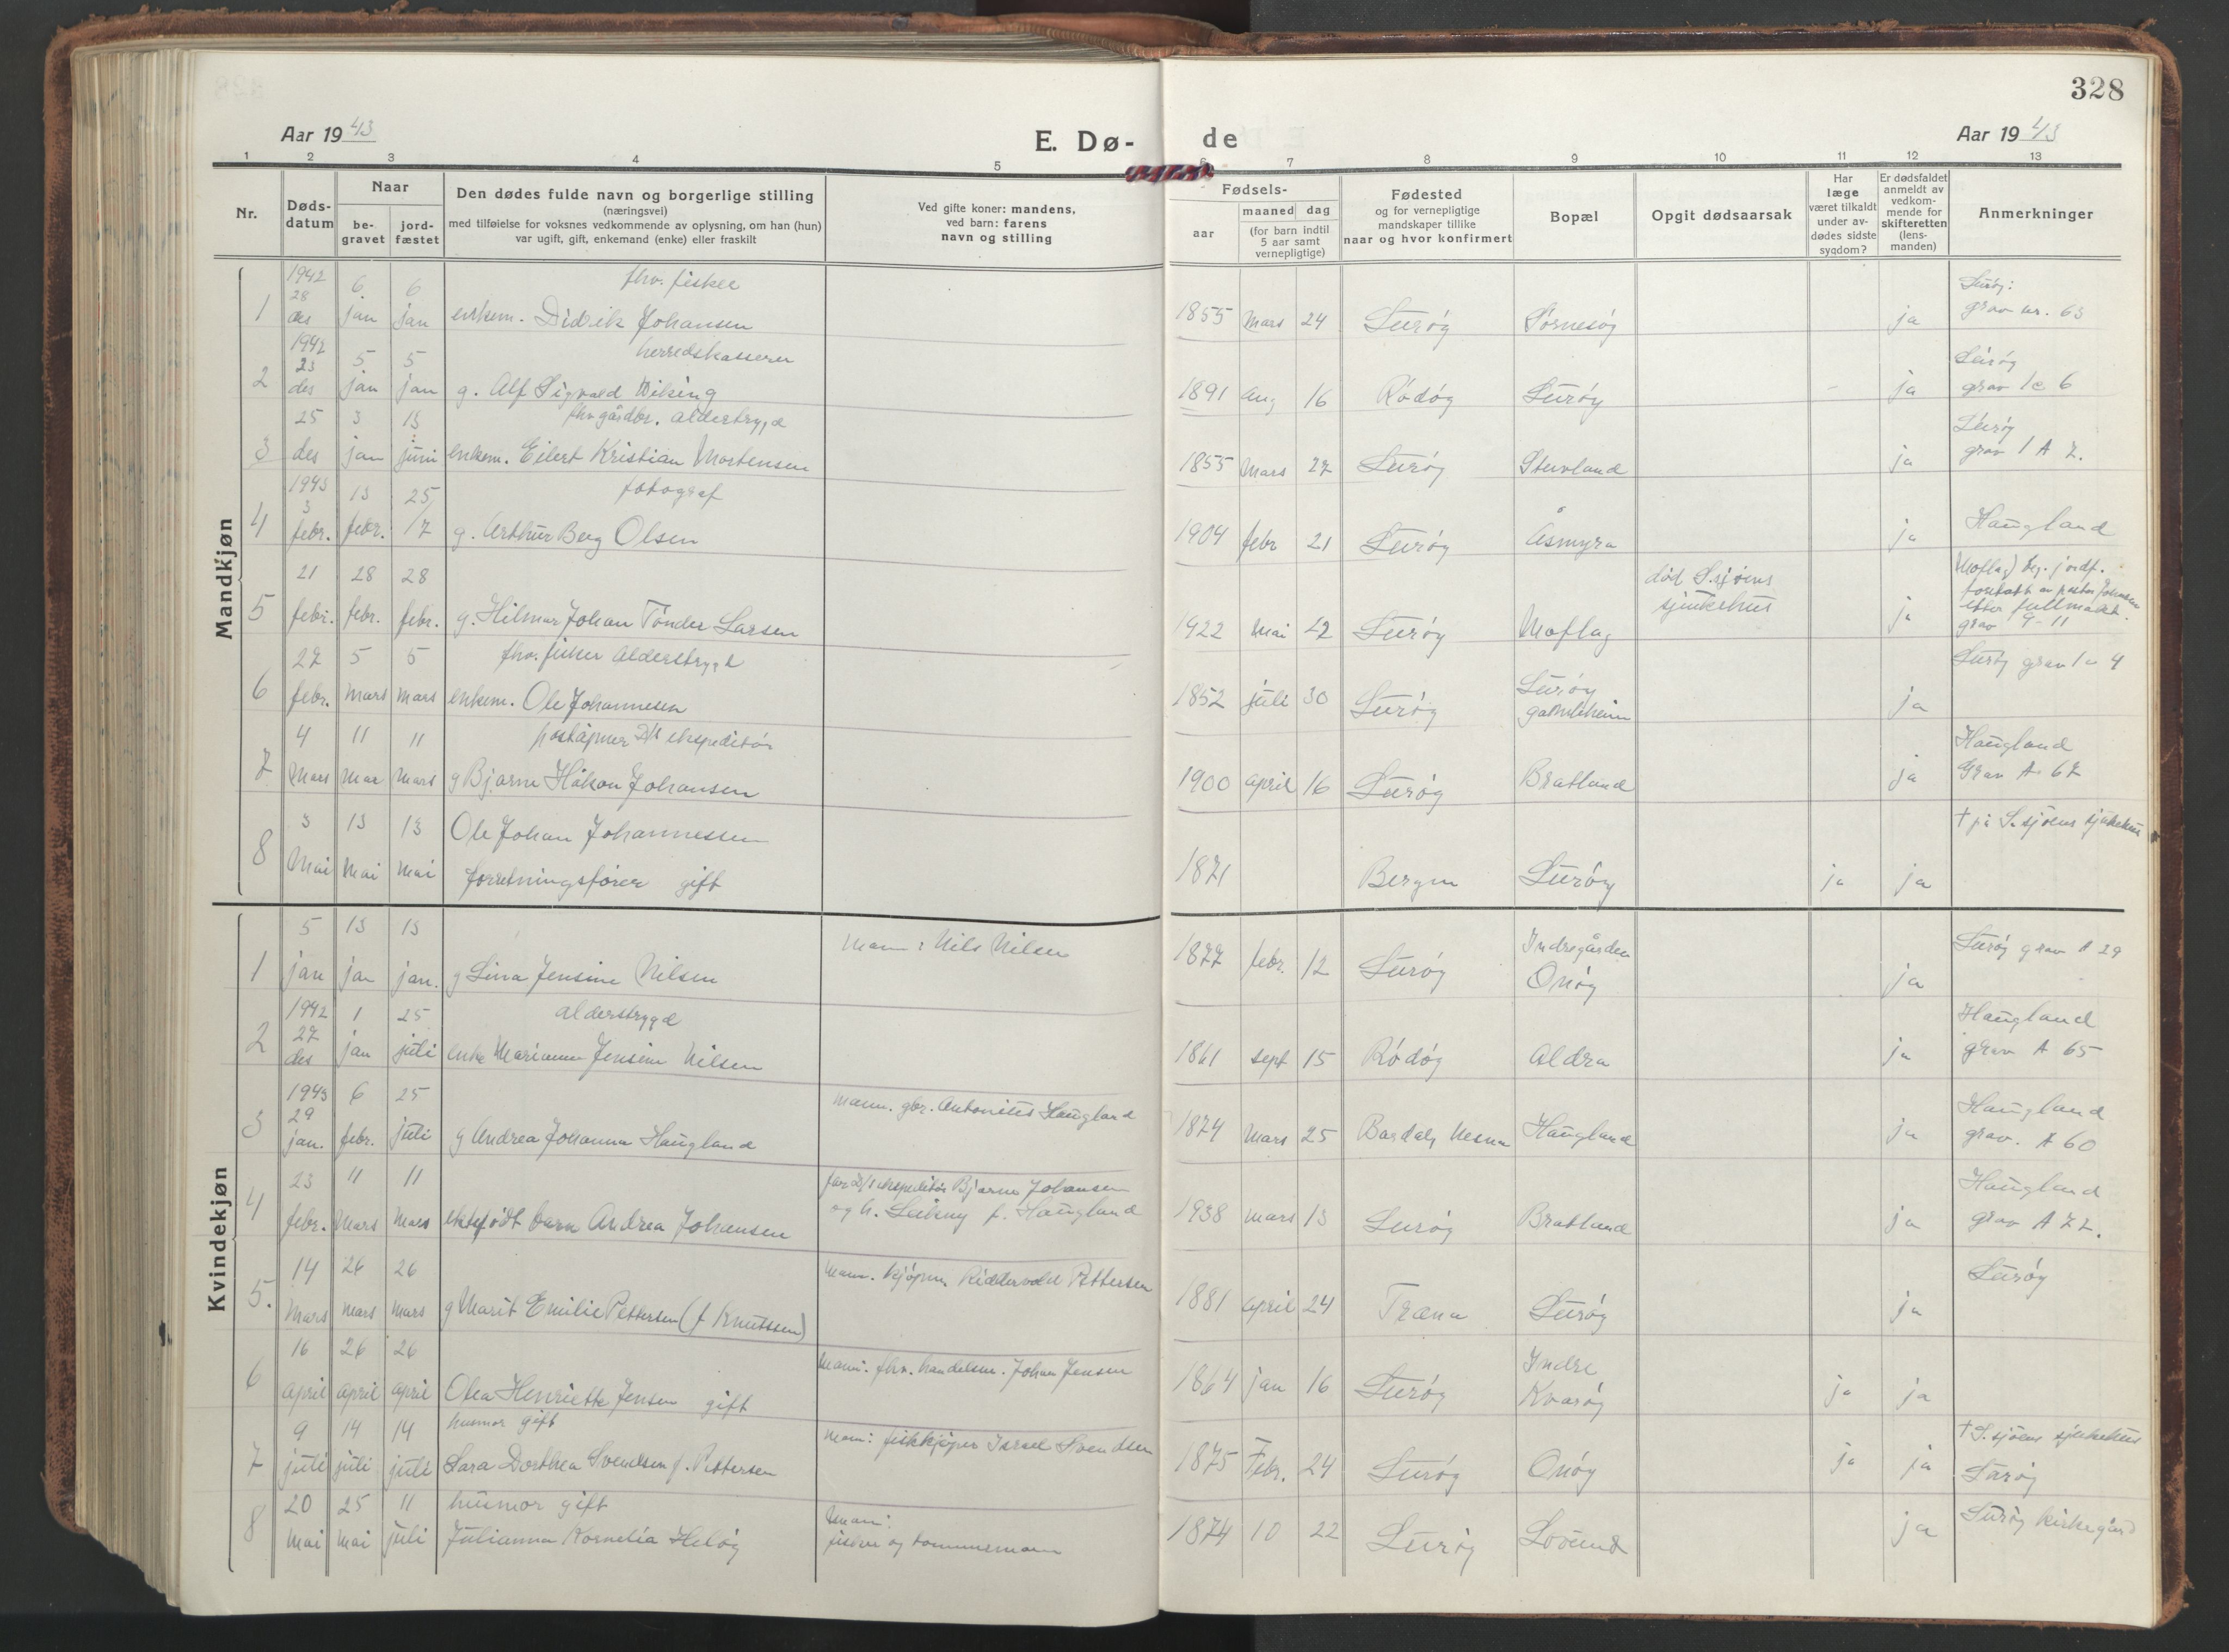 328
Aar 1943
E. Dø-
de
Aar 1943
1 2 3 4 5 6 7 8 9 10 11 12 13
Nr.
Døds-
datum
Naar
be-
gravet
jord-
fæstet
Den dødes fulde navn og borgerlige stilling
(næringsvei)
med tilføielse for voksnes vedkommende av oplysning, om han (hun)
var ugift, gift, enkemand (enke) eller fraskilt
Ved gifte koner: mandens,
ved barn: farens
navn og stilling
Fødsels-
aar
maaned dag
(for barn indtil
5 aar samt
vernepligtige)
Fødested
og for vernepligtige
mandskaper tillike
naar og hvor konfirmert
Bopæl
Opgit dødsaarsak
Har
læge
været tilkaldt
under av-
dødes sidste
sygdom?
Er dødsfaldet
anmeldt av
vedkom-
mende for
skifteretten
(lens-
manden)
Anmerkninger
Mandkjøn
1942 6 6 fhv. fisker Lurøy:
28
1 des jan jan enkem. Didrik Johansen 1855 Mars 24 Lurøy Sørnesøy ja grav nr. 63
1942 herredskasserer
23 5 5 Lurøy
2 des jan jan g. Alf Sigvald Wiking 1891 Aug 16 Rødøy Lurøy - ja grav 1c 6
25 3 13 fhv gårdbr. alderstrygd Lurøy
3 des jan juni enkem. Eilert Kristian Mortensen 1855 Mars 27 Lurøy Stuvland ja grav 1 A 7.
1943 13 25 fotograf
3
4 febr. febr. /7 g. Arthur Berg Olsen 1904 febr 21 Lurøy Åsmyra ja Haugland
21 28 28 død S.sjøens Moflag) beg. jordf.
sjukehus foretatt av pastor Johansen
etter fullmakt.
5 febr. febr. febr. g. Hilmar Johan Tønder Larsen 1922 Mai 27 Lurøy Moflag ja grav 9-11
27 5 5 fhv. fisker Alderstrygd Lurøy grav 1 a 4
6 febr. mars mars enkem. Ole Johannesen 1852 juli 30 Lurøy Lurøy
gamleheim ja
4 11 11 poståpner D/S ekspeditør Haugland
7 Mars Mar Mars g Bjarne Håkon Johansen 1900 april 16 Lurøy Bratland ja Grav A 67
3 13 13 Ole Johan Johannessen † på S.sjøens sjukehus
8 Mai Mai Mai forretningsfører gift 1871 Bergen Lurøy ja ja
Kvindekjøn
5 13 13 Mann: Nils Nilsen Indregården Lurøy grav A 29
1 jan jan jan. g Lina Jensine Nilsen 1877 febr. 12 Lurøy Onøy ja
1942 1 25 alderstrygd Haugland
27
2 des jan juli enke Marianna Jensine Nilsen 1861 sept 15 Rødøy Aldra ja grav A 65
1943 6 25 Mann. gbr. Antonius Haugland Haugland
29
3 jan. febr. juli g Andrea Johanna Haugland 1874 Mars 25 Bardal, Nesna Haugland ja grav. A 60
23 11 11 far D/S ekspeditør Bjarne Johansen Haugland
og h. Leikny f. Haugland
4 febr. Mars Mars ektefødt barn Andrea Johansen 1938 mars 13 Lurøy Bratland ja grav A 77.
14 26 26 Mann. kjøpm. Riddervold Pettersen Lurøy
5. Mars mars mars g Marit Emilie Pettersen (f Knutssen) 1881 april 24 Træna Lurøy ja
16 26 26 Mann: fhv. handelsm. Johan Jensen Indre
6 april april april Olea Henriette Jensen gift 1864 jan 16 Lurøy Kvarøy ja ja
9 14 14 husmor gift Mann: fiskkjøper Israel Svendsen † S.sjøens sjukehus
7 juli juli juli Sara Dorthea Svendsen f. Pettersen 1875 Febr. 24 Lurøy Onøy ja ja Lurøy
20 25 11 husmor gift Mann: Lurøy kirkegård
8 mai mai juli Julianna Kornelia Heløy fisker og tømmermann 1874 10 22 Lurøy Lovund ja